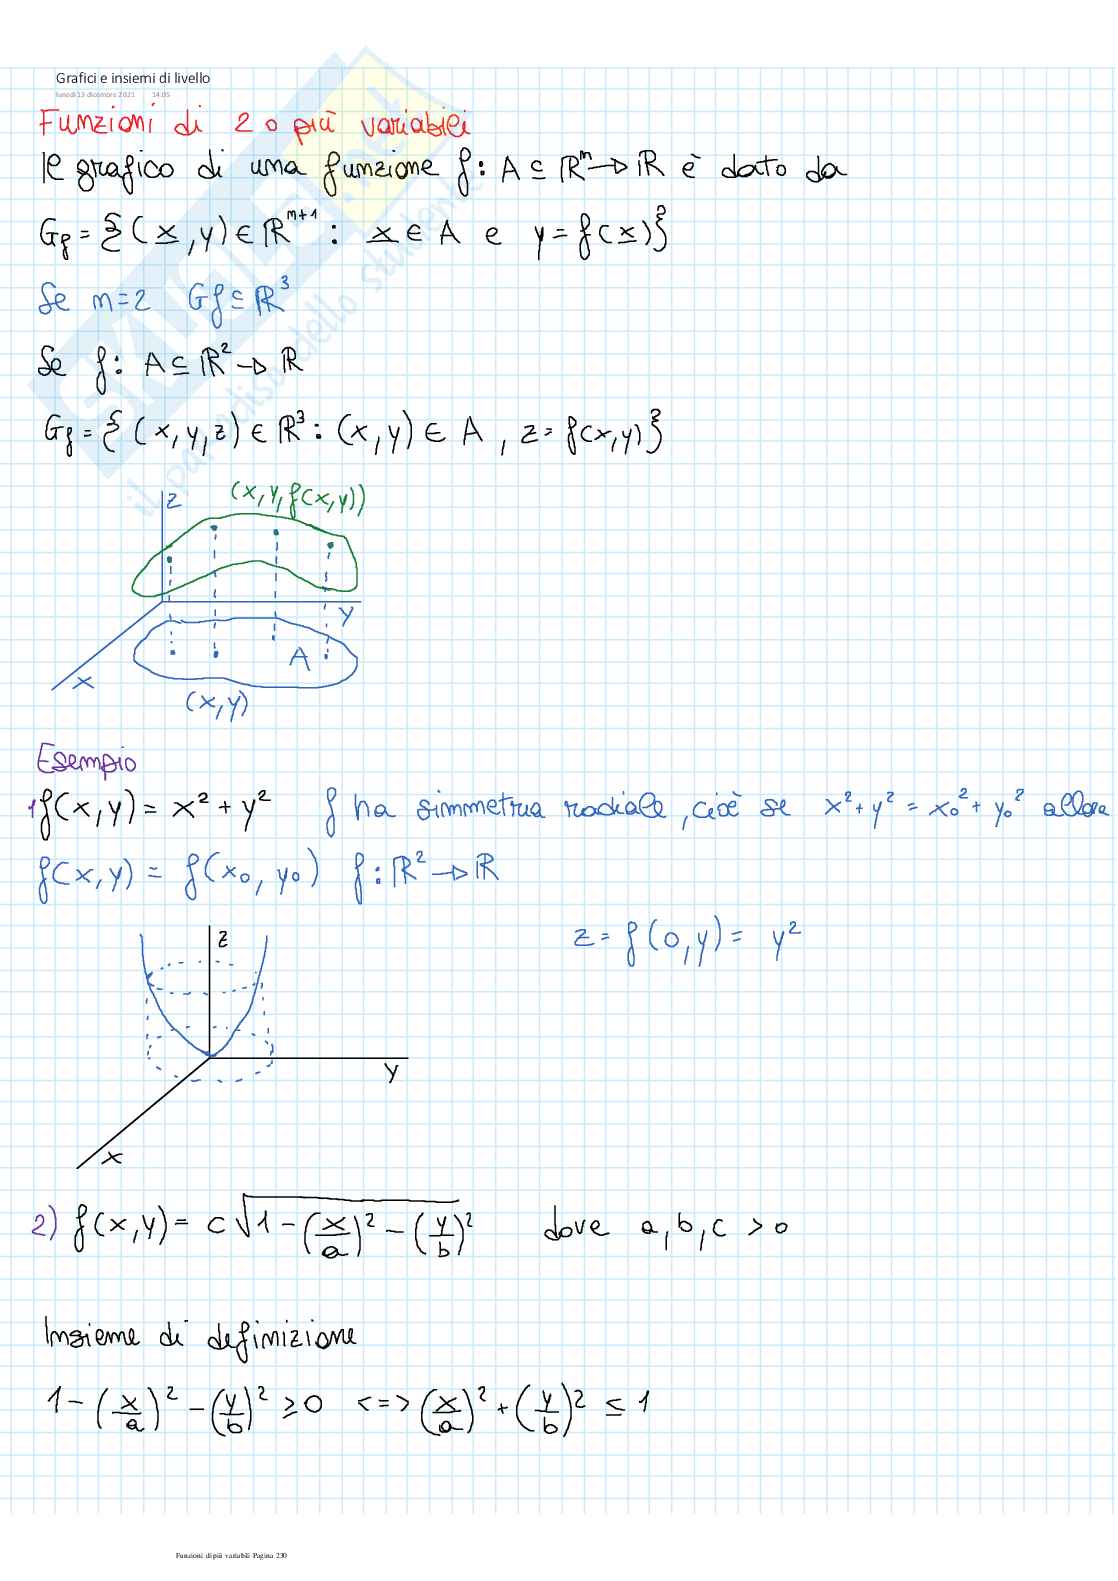 Grafici e insiemi di livello
lunedì 13 dicembre 2021 14:05
Funzioni di 2 o più variabili
Il grafico di una funzione f: A ⊆ ℝⁿ → ℝ è dato da
Gf = {(x, y) ∈ ℝⁿ⁺¹ : x ∈ A e y = f(x)}
Se n=2 Gf ⊆ ℝ³
Se f: A ⊆ ℝ² → ℝ
Gf = {(x, y, z) ∈ ℝ³ : (x, y) ∈ A, z = f(x, y)}
z
(x, y, f(x, y))
y
A
x
(x, y)
Esempio
1) f(x, y) = x² + y² f ha simmetria radiale, cioè se x² + y² = x₀² + y₀² allora
f(x, y) = f(x₀, y₀) f: ℝ² → ℝ
z = f(0, y) = y²
z
y
x
2) f(x, y) = c√(1 - (x/a)² - (y/b)²) dove a, b, c > 0
Insieme di definizione
1 - (x/a)² - (y/b)² ≥ 0 <=> (x/a)² + (y/b)² ≤ 1
Funzioni di più variabili Pagina 230
SKUOLA.net
il paradiso dello studente